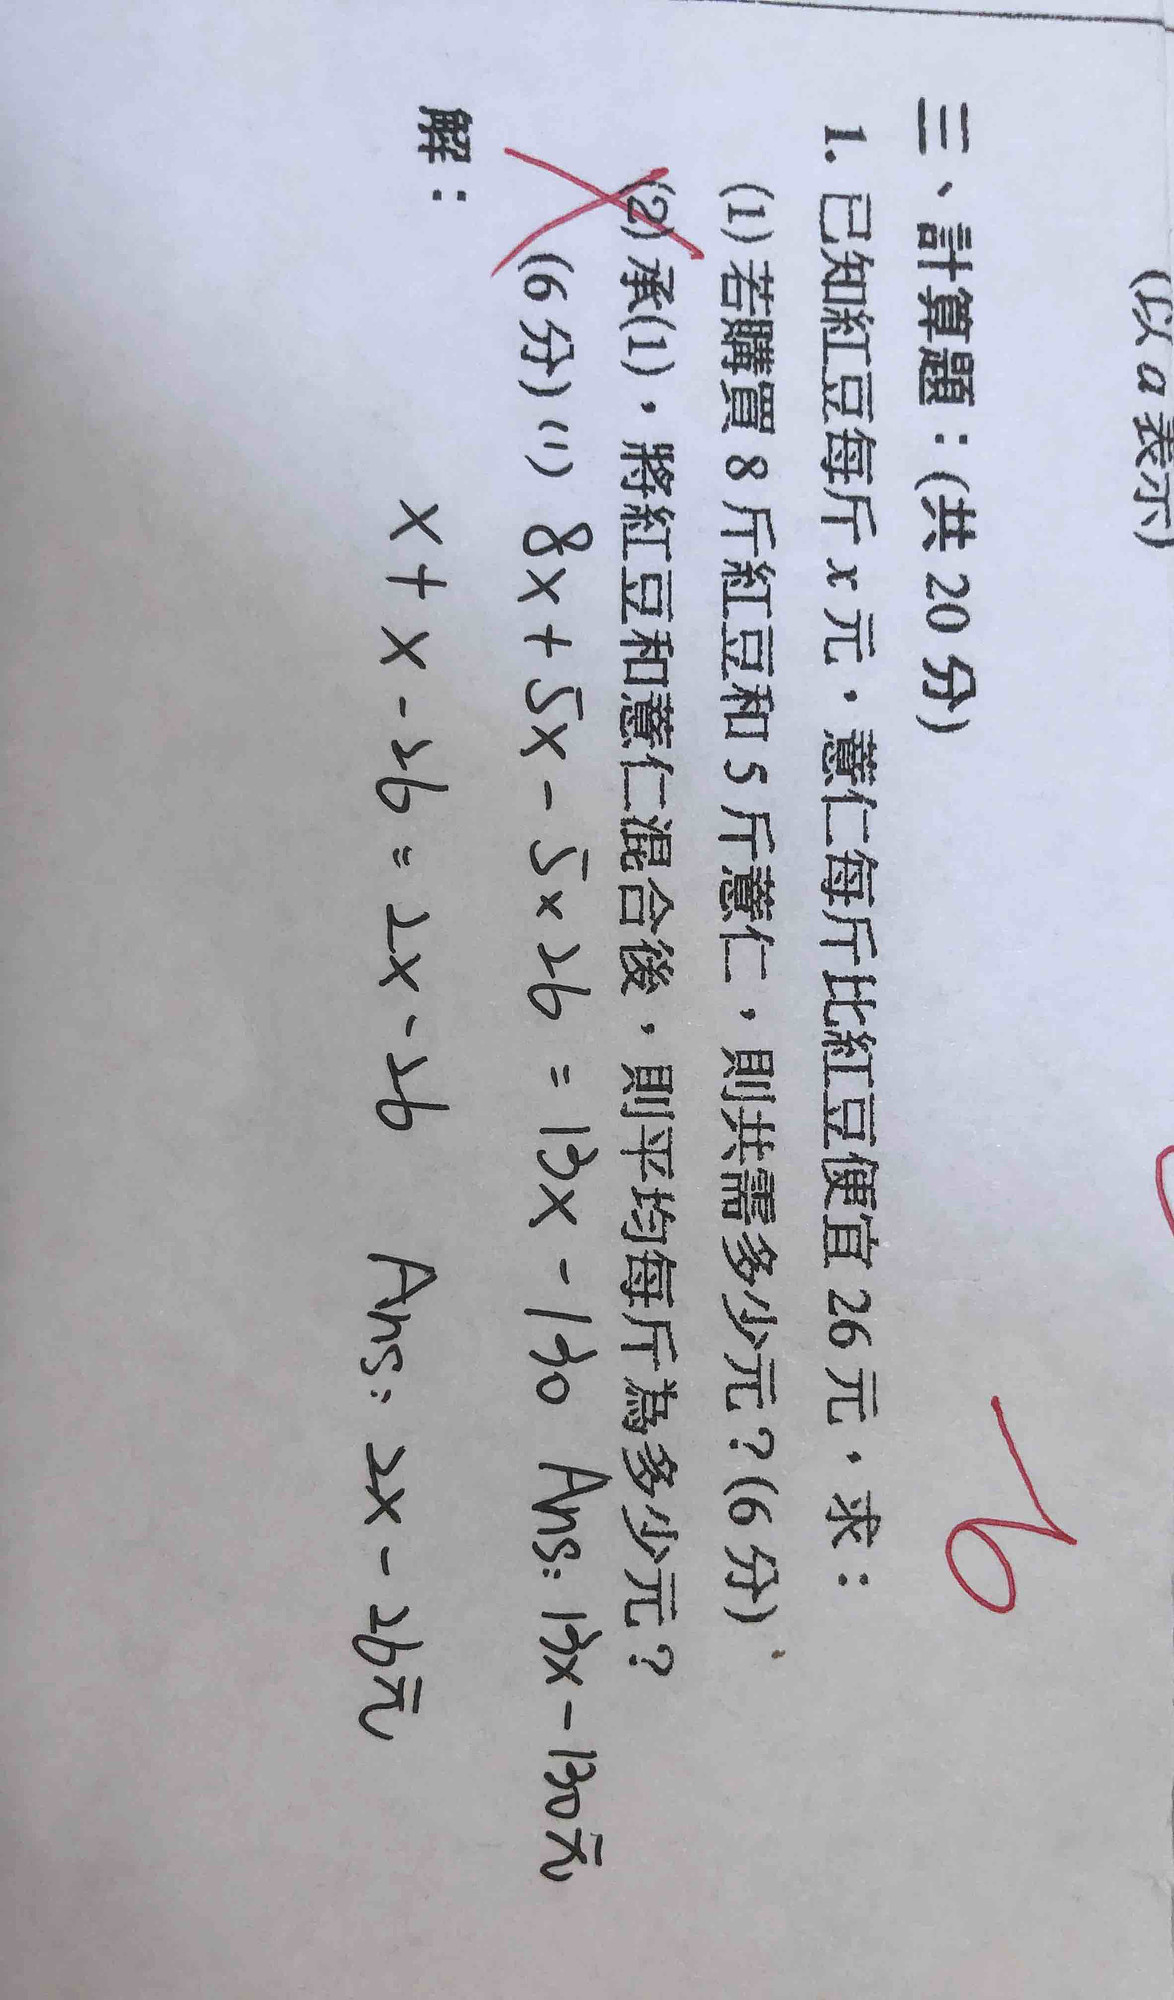 (以a表示)
三、計算題：(共20分)
1. 已知紅豆每斤x元，薏仁每斤比紅豆便宜26元，求：
(1) 若購買8斤紅豆和5斤薏仁，則共需多少元？(6分)
(2) 承(1)，將紅豆和薏仁混合後，則平均每斤為多少元？
(6分) (1) 8x+5x-5×26=13x-130 Ans: 13x-130元
解：
x+x-26=2x-26 Ans: 2x-26元
-6